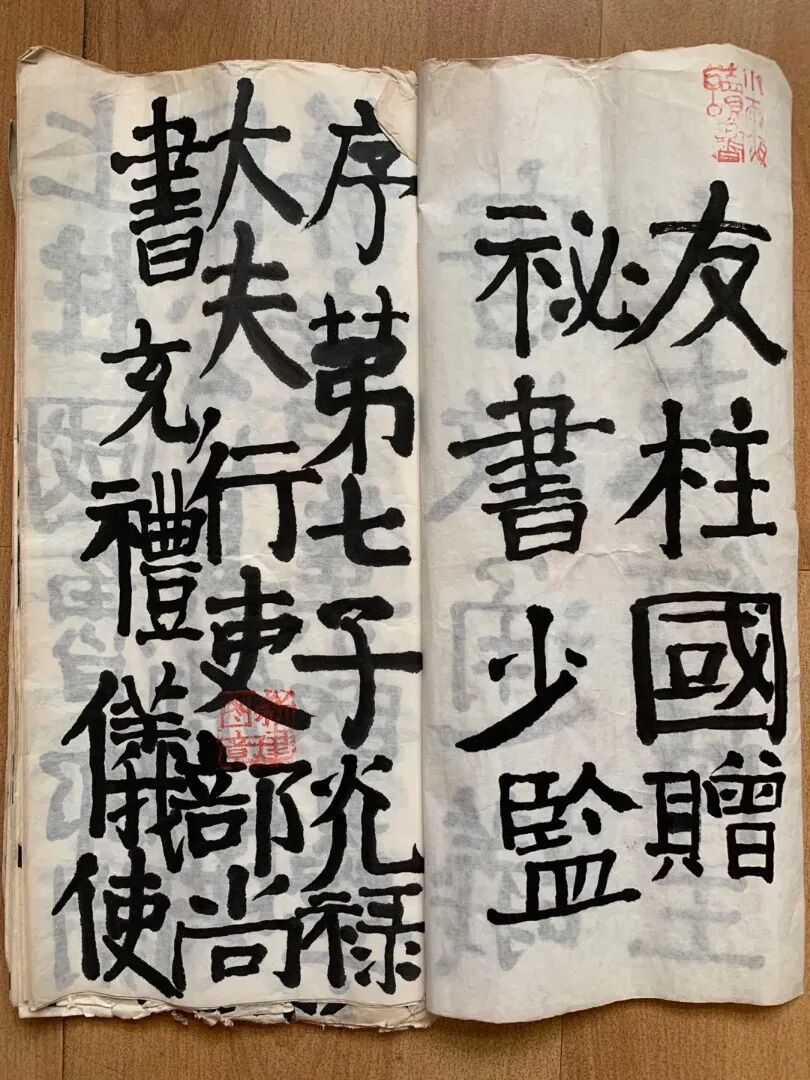 友柱國贈
祕書少監
序第七子光祿
大夫行吏部尚
書充禮儀使